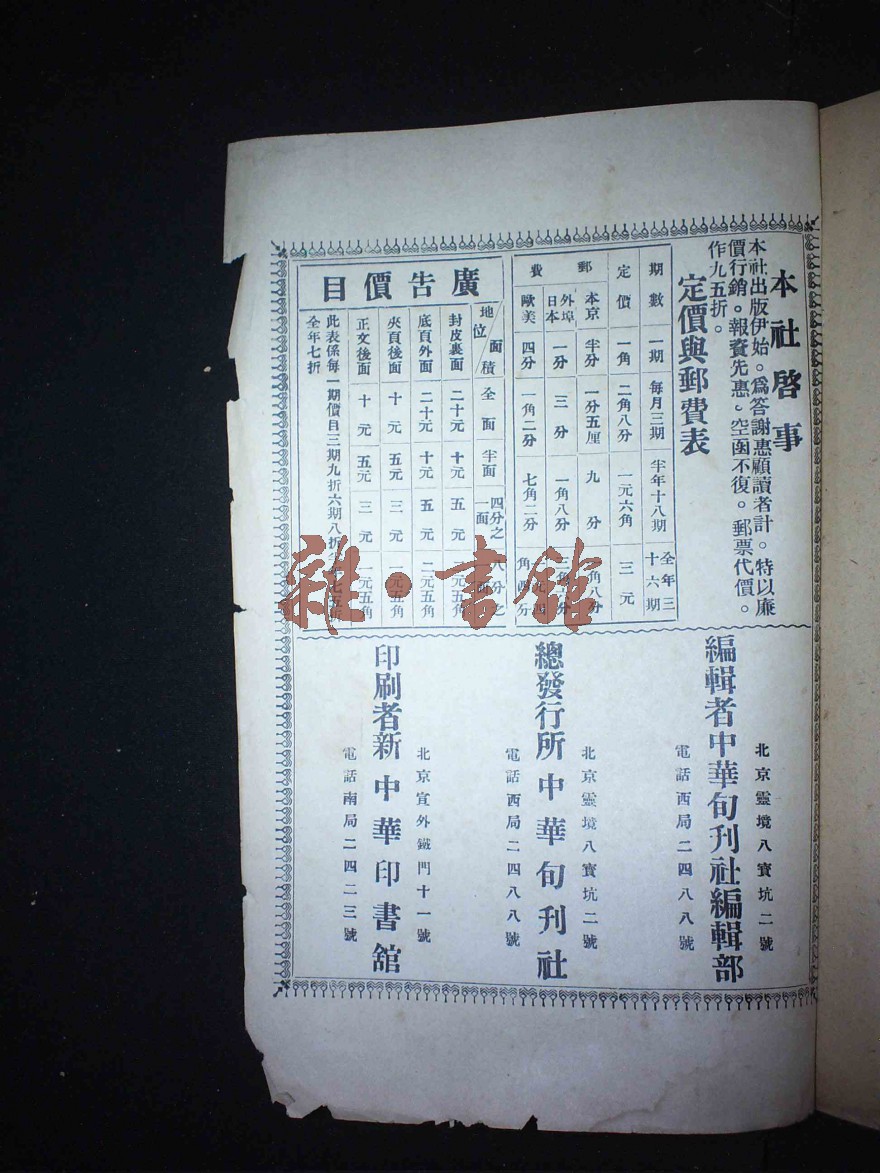 本社啓事
本社出版伊始。爲答謝惠顧讀者計。特以廉
價行銷。報資先惠。空函不復。郵票代價。
作九五折。
定價與郵費表
期數 一期 每月三期 半年十八期 全年三十六期
定價 一角 二角八分 一元六角 三元
郵費
本京 半分 一分五厘 九分 角八分
外埠日本 一分 三分 一角八分 三角 分
歐美 四分 一角二分 七角二分
廣告價目
面積 地位 全面 半面 四分之一面 八分之 面
封皮裏面 二十元 十元 五元 元五角
底頁外面 二十元 十元 五元 二元五角
夾頁後面 十元 五元 三元 一元五角
正文後面 十元 五元 三元 一元五角
此表係每一期價目三期九折六期八折 年七五折
全年七折
編輯者中華旬刊社編輯部
北京靈境八寶坑二號
電話西局二四八八號
總發行所中華旬刊社
北京靈境八寶坑二號
電話西局二四八八號
印刷者新中華印書舘
北京宣外鐵門十一號
電話南局二四二三號
雜·書館